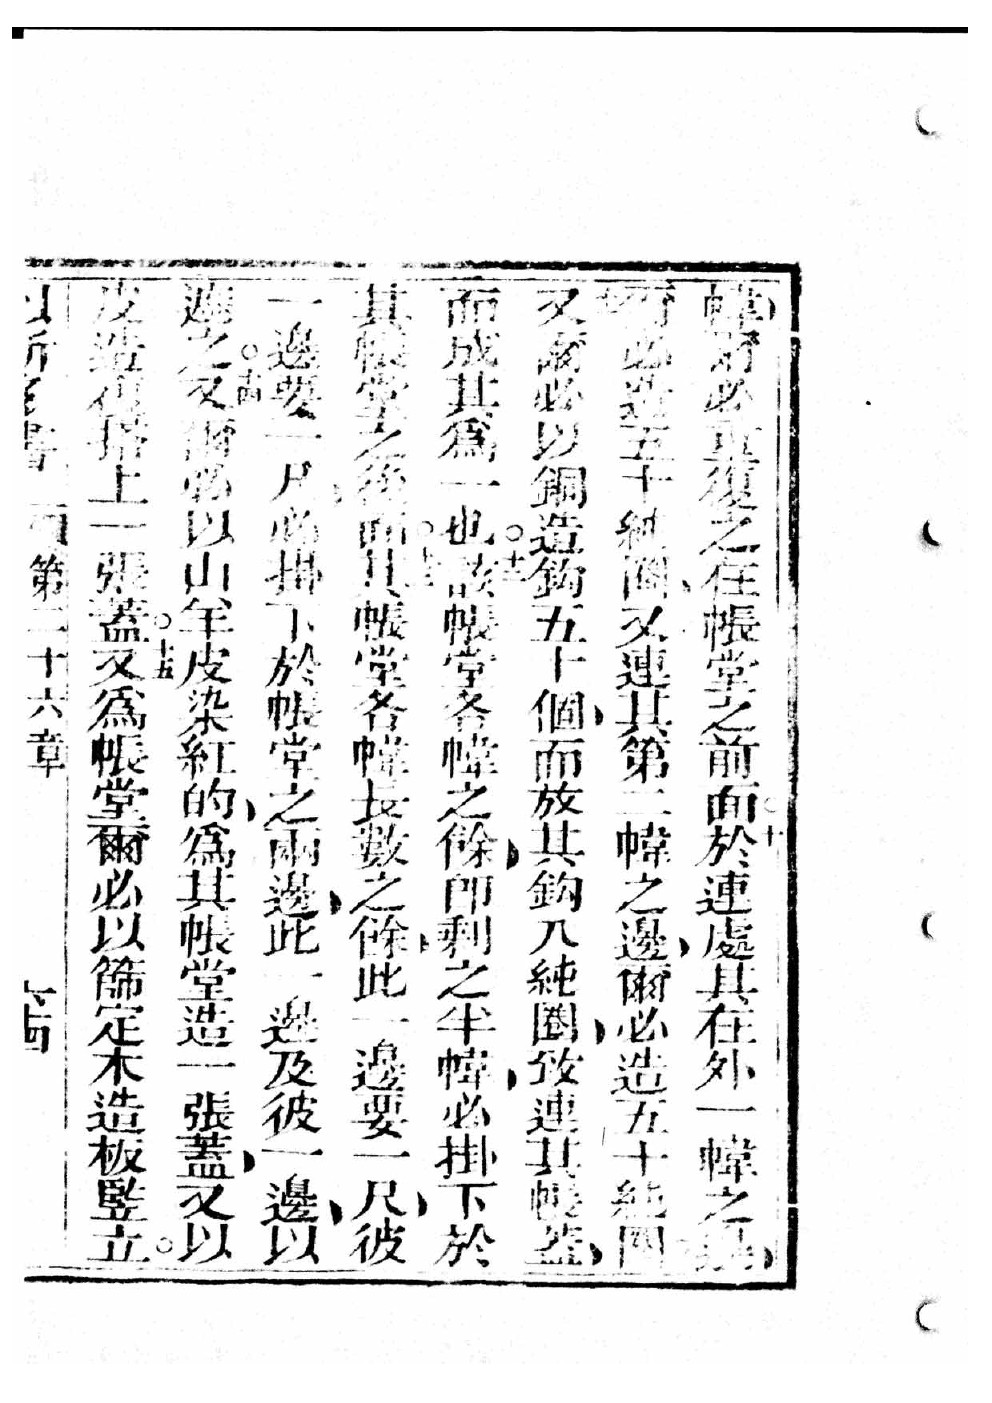 幃爾必重復之在帳堂之前面於○十連處其在外一幃之
爾必造五十純圈又連其第二幃之邊爾必造五十純圈
又爾必以銅造鈎五十個而放其鈎入純圈致連其帳蓋
而成其為一也○十二該帳堂各幃之餘即剩之半幃必掛下於
其帳堂之後面○十三其帳堂各幃長數之餘此一邊要一尺彼
一邊要一尺必掛下於帳堂之兩邊此一邊及彼一邊以
遮之○十四又爾必以山羊皮染紅的為其帳堂造一張蓋又以
皮造在搭上一張蓋○十五又為帳堂爾必以篩定木造板豎立○
第二十六章